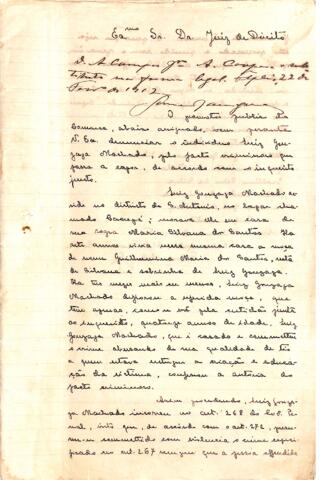 Exmo Sr. Dr. Juiz de Direito
D. A. Campos
tituto na forma legal. 22 de
de 1912
O promotor publico da
Comarca, abaixo assignado, vem perante
V. Ea. denunciar o individuo Luiz Gon-
zaga Machado, pelo facto criminoso que
passa a expor, de accordo com o inquerito
junto.
Luiz Gonzaga Machado re-
side no districto de S. Antonio, no lugar cha-
mado; morava elle em casa de
sua sogra Maria Silvana dos Santos. Ha
sete annos vivia nessa mesma casa a moça
de nome Guilhermina Maria dos Santos, neta
de Silvana e sobrinha de Luiz Gonzaga.
Ha tres mezes mais ou menos, Luiz Gonzaga
Machado deflorou a referida moça, que
tem apenas, como se vê pela certidão junta
ao inquerito, quatorze annos de idade. Luiz
Gonzaga Machado, que é casado e commetteu
o crime abusando de sua qualidade de tio
a quem estava entregue a criação e educa-
ção da victima, confessou a autoria do
facto criminoso.
Assim procedendo, Luiz Gonza-
ga Machado incorreu no art. 268 do Cod. Pe-
nal, visto que, de accordo com o art. 272, presu-
me-se commettido com violencia o crime especi-
ficado no art. 267 sempre que a pessoa offendida